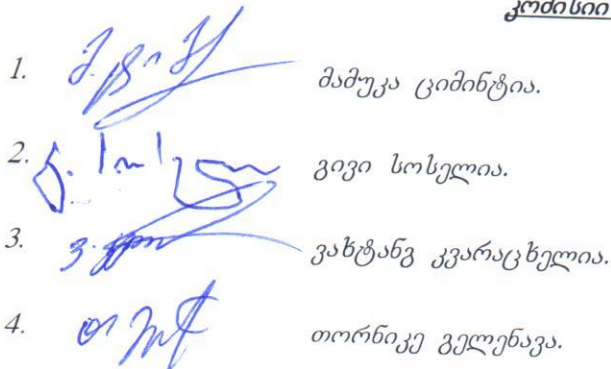 კომისიი
1. მამუკა ციმინტია.
2. გივი სოსელია.
3. ვახტანგ კვარაცხელია.
4. თორნიკე გელენავა.